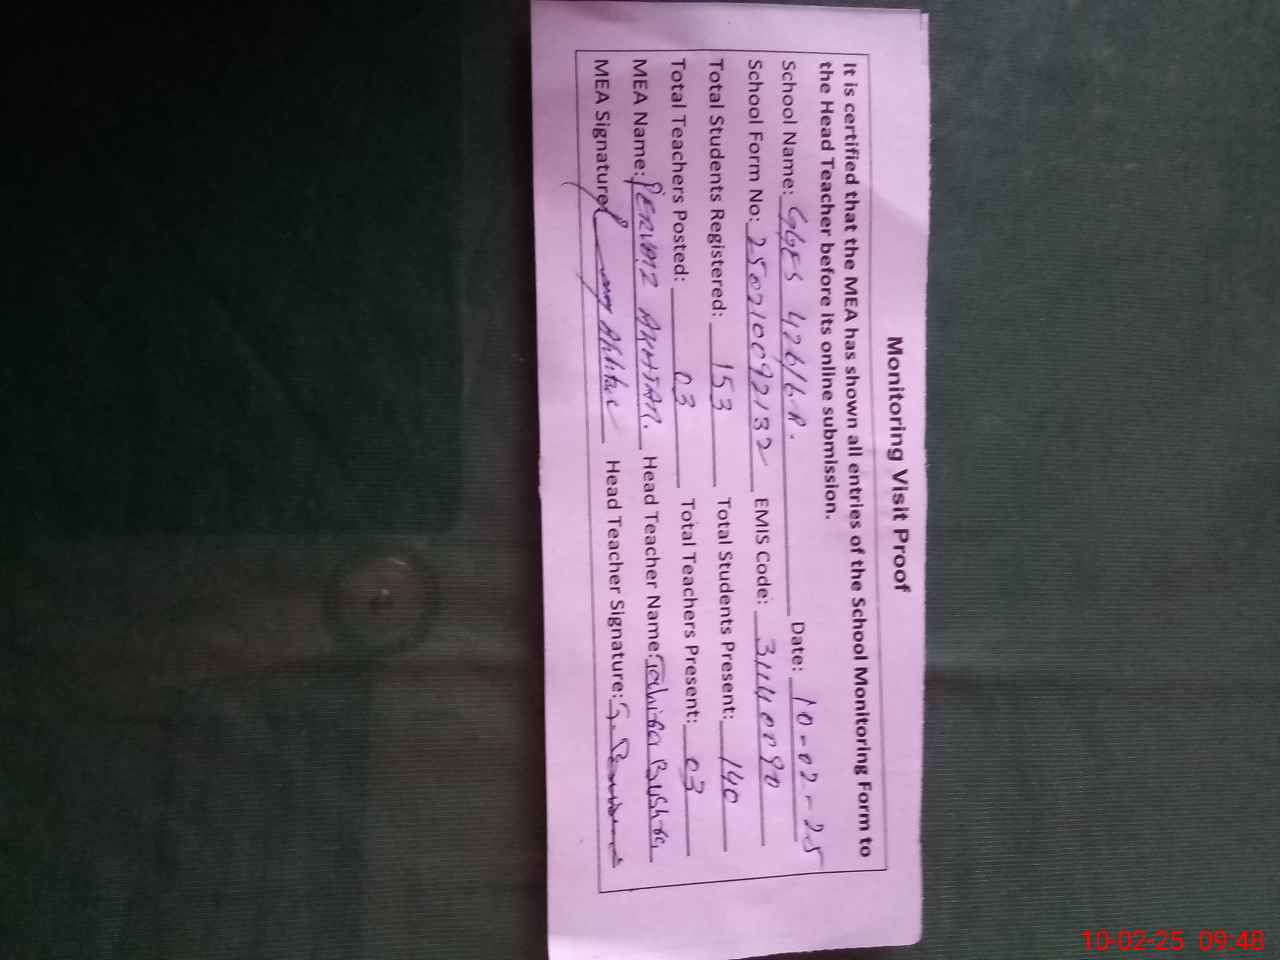 Monitoring Visit Proof
It is certified that the MEA has shown all entries of the School Monitoring Form to
the Head Teacher before its online submission.
School Name: GGES 426/6.R. Date: 10-02-25
School Form No: 250210092132 EMIS Code: 31140090
Total Students Registered: 153 Total Students Present: 140
Total Teachers Posted: 03 Total Teachers Present: 03
MEA Name: PERVAIZ AKHTAR. Head Teacher Name: Bushra
MEA Signature Akhtar Head Teacher Signature:
10-02-25 09:48